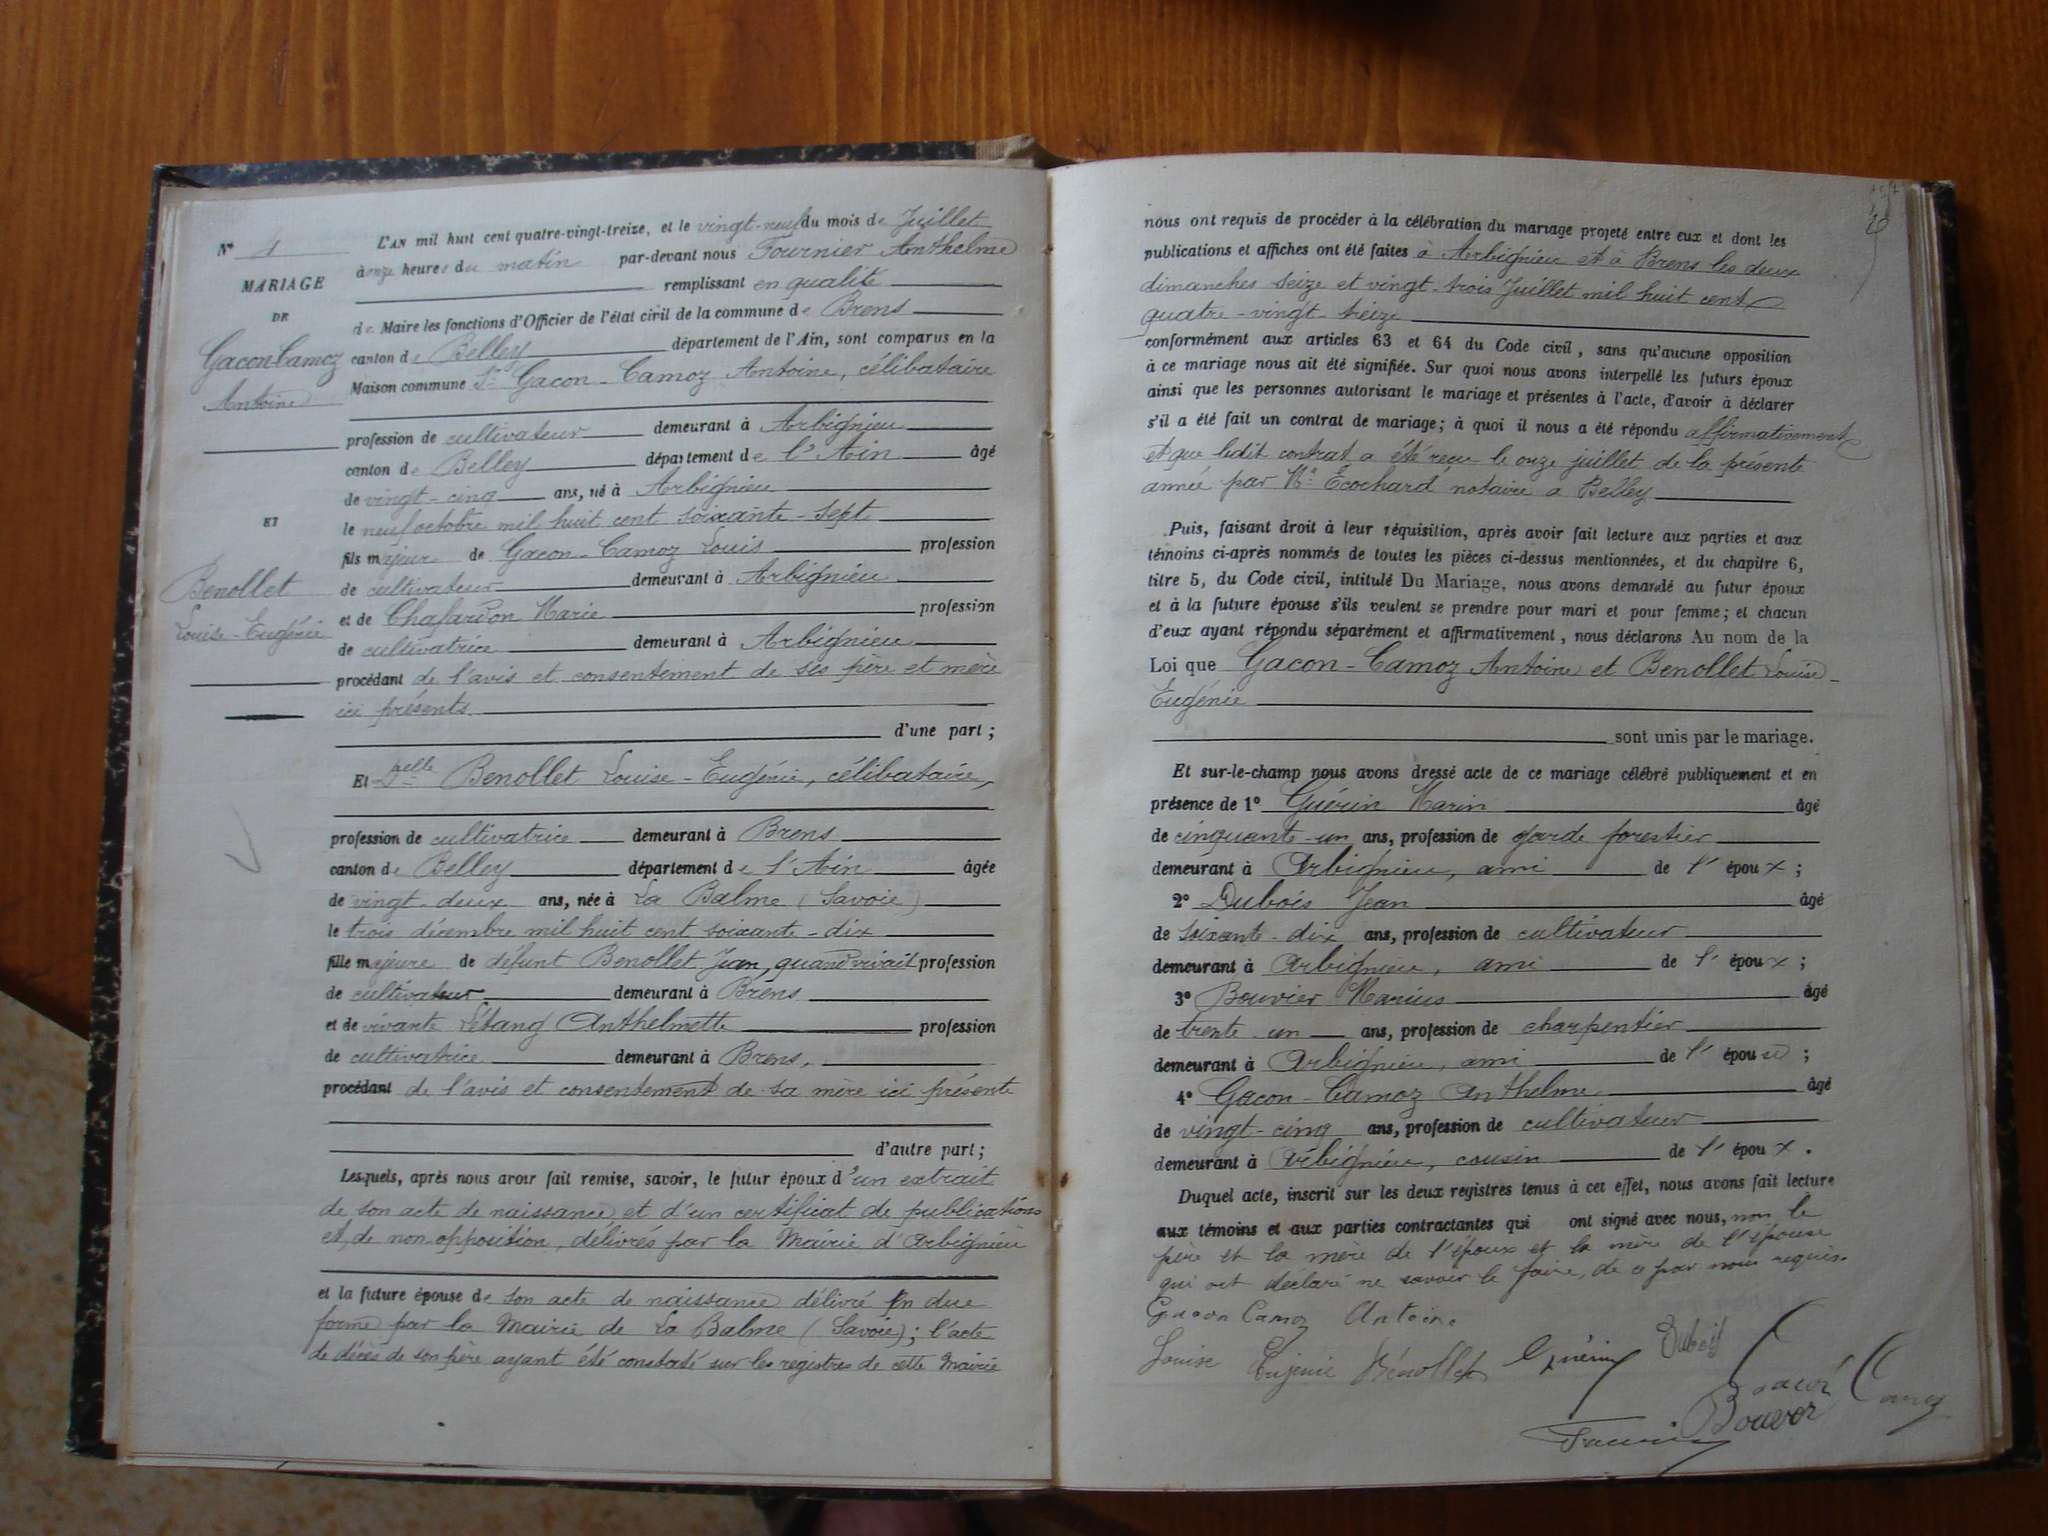 N° 1
MARIAGE
DE
Gacon-Camoz
Antoine
ET
Benollet
Louise-Eugénie
L'AN mil huit cent quatre-vingt-treize, et le vingt-neuf du mois de Juillet
à onze heures du matin par-devant nous Fournier Anthelme
remplissant en qualité
de Maire les fonctions d'Officier de l'état civil de la commune de Brens
canton de Belley département de l'Ain, sont comparus en la
Maison commune Sr Gacon-Camoz Antoine, célibataire
profession de cultivateur demeurant à Arbignieu
canton de Belley département de l'Ain âgé
de vingt-cinq ans, né à Arbignieu
le neuf octobre mil huit cent soixante-sept
fils majeur de Gacon-Camoz Louis profession
de cultivateur demeurant à Arbignieu
et de Chafardon Marie profession
de cultivatrice demeurant à Arbignieu
procédant de l'avis et consentement de ses père et mère
ici présents
d'une part ;
Et Delle Benollet Louise-Eugénie, célibataire,
profession de cultivatrice demeurant à Brens
canton de Belley département de l'Ain âgée
de vingt-deux ans, née à La Balme (Savoie)
le trois décembre mil huit cent soixante-dix
fille majeure de défunt Benollet Jean, quand vivait profession
de cultivateur demeurant à Brens
et de vivante Létang Anthelmette profession
de cultivatrice demeurant à Brens,
procédant de l'avis et consentement de sa mère ici présente
d'autre part ;
Lesquels, après nous avoir fait remise, savoir, le futur époux d'un extrait
de son acte de naissance et d'un certificat de publications
et de non opposition, délivrés par la Mairie d'Arbignieu
et la future épouse de son acte de naissance délivré en due
forme par la Mairie de La Balme (Savoie) ; l'acte
de décès de son père ayant été constaté sur les registres de cette Mairie
nous ont requis de procéder à la célébration du mariage projeté entre eux et dont les
publications et affiches ont été faites à Arbignieu et à Brens les deux
dimanches seize et vingt-trois Juillet mil huit cent
quatre-vingt-treize
conformément aux articles 63 et 64 du Code civil, sans qu'aucune opposition
à ce mariage nous ait été signifiée. Sur quoi nous avons interpellé les futurs époux
ainsi que les personnes autorisant le mariage et présentes à l'acte, d'avoir à déclarer
s'il a été fait un contrat de mariage ; à quoi il nous a été répondu affirmativement
et que ledit contrat a été reçu le onze juillet de la présente
année par Me Ecochard notaire à Belley
Puis, faisant droit à leur réquisition, après avoir fait lecture aux parties et aux
témoins ci-après nommés de toutes les pièces ci-dessus mentionnées, et du chapitre 6,
titre 5, du Code civil, intitulé Du Mariage, nous avons demandé au futur époux
et à la future épouse s'ils veulent se prendre pour mari et pour femme ; et chacun
d'eux ayant répondu séparément et affirmativement, nous déclarons Au nom de la
Loi que Gacon-Camoz Antoine et Benollet Louise-
Eugénie
sont unis par le mariage.
Et sur-le-champ nous avons dressé acte de ce mariage célébré publiquement et en
présence de 1° Guérin Marin âgé
de cinquante-un ans, profession de garde forestier
demeurant à Arbignieu, ami de l'époux ;
2° Dubois Jean âgé
de soixante-dix ans, profession de cultivateur
demeurant à Arbignieu, ami de l'époux ;
3° Bouvier Marius âgé
de trente-un ans, profession de charpentier
demeurant à Arbignieu, ami de l'épouse ;
4° Gacon-Camoz Anthelme âgé
de vingt-cinq ans, profession de cultivateur
demeurant à Arbignieu, cousin de l'époux.
Duquel acte, inscrit sur les deux registres tenus à cet effet, nous avons fait lecture
aux témoins et aux parties contractantes qui ont signé avec nous, non le
père et la mère de l'époux et la mère de l'épouse
qui ont déclaré ne savoir le faire, de ce par nous requis.
Gacon Camoz Antoine
Louise Eujenie Bénollet Guérin Dubois
Gacon Camoz
Bouvier